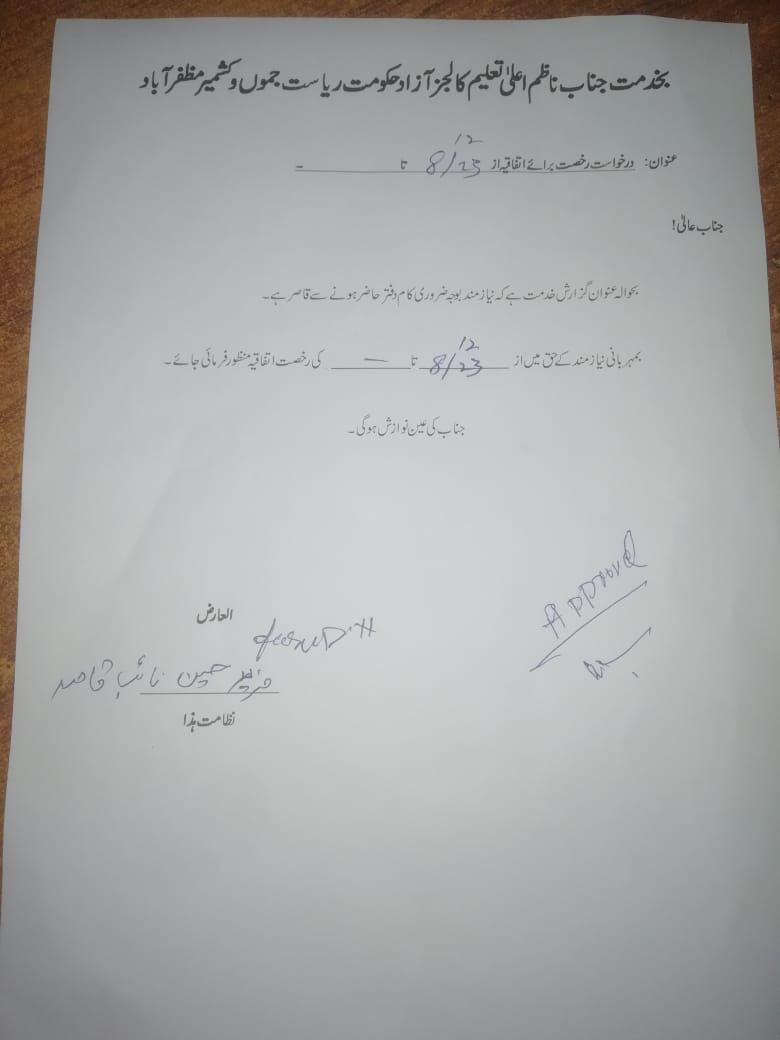 بخدمت جناب ناظم اعلیٰ تعلیم کالجز آزاد حکومت ریاست جموں و کشمیر مظفر آباد
12
عنوان: درخواست رخصت برائے اتفاقیہ از 8/23 تا ۔
جناب عالیٰ!
بحوالہ عنوان گزارش خدمت ہے کہ نیازمند بوجہ ضروری کام دفتر حاضر ہونے سے قاصر ہے۔
12
بمہربانی نیازمند کے حق میں از 8/23 تا — کی رخصت اتفاقیہ منظور فرمائی جائے۔
جناب کی عین نوازش ہوگی۔
Approved
العارض
حسین نائب قاصد
نظامت ہذا